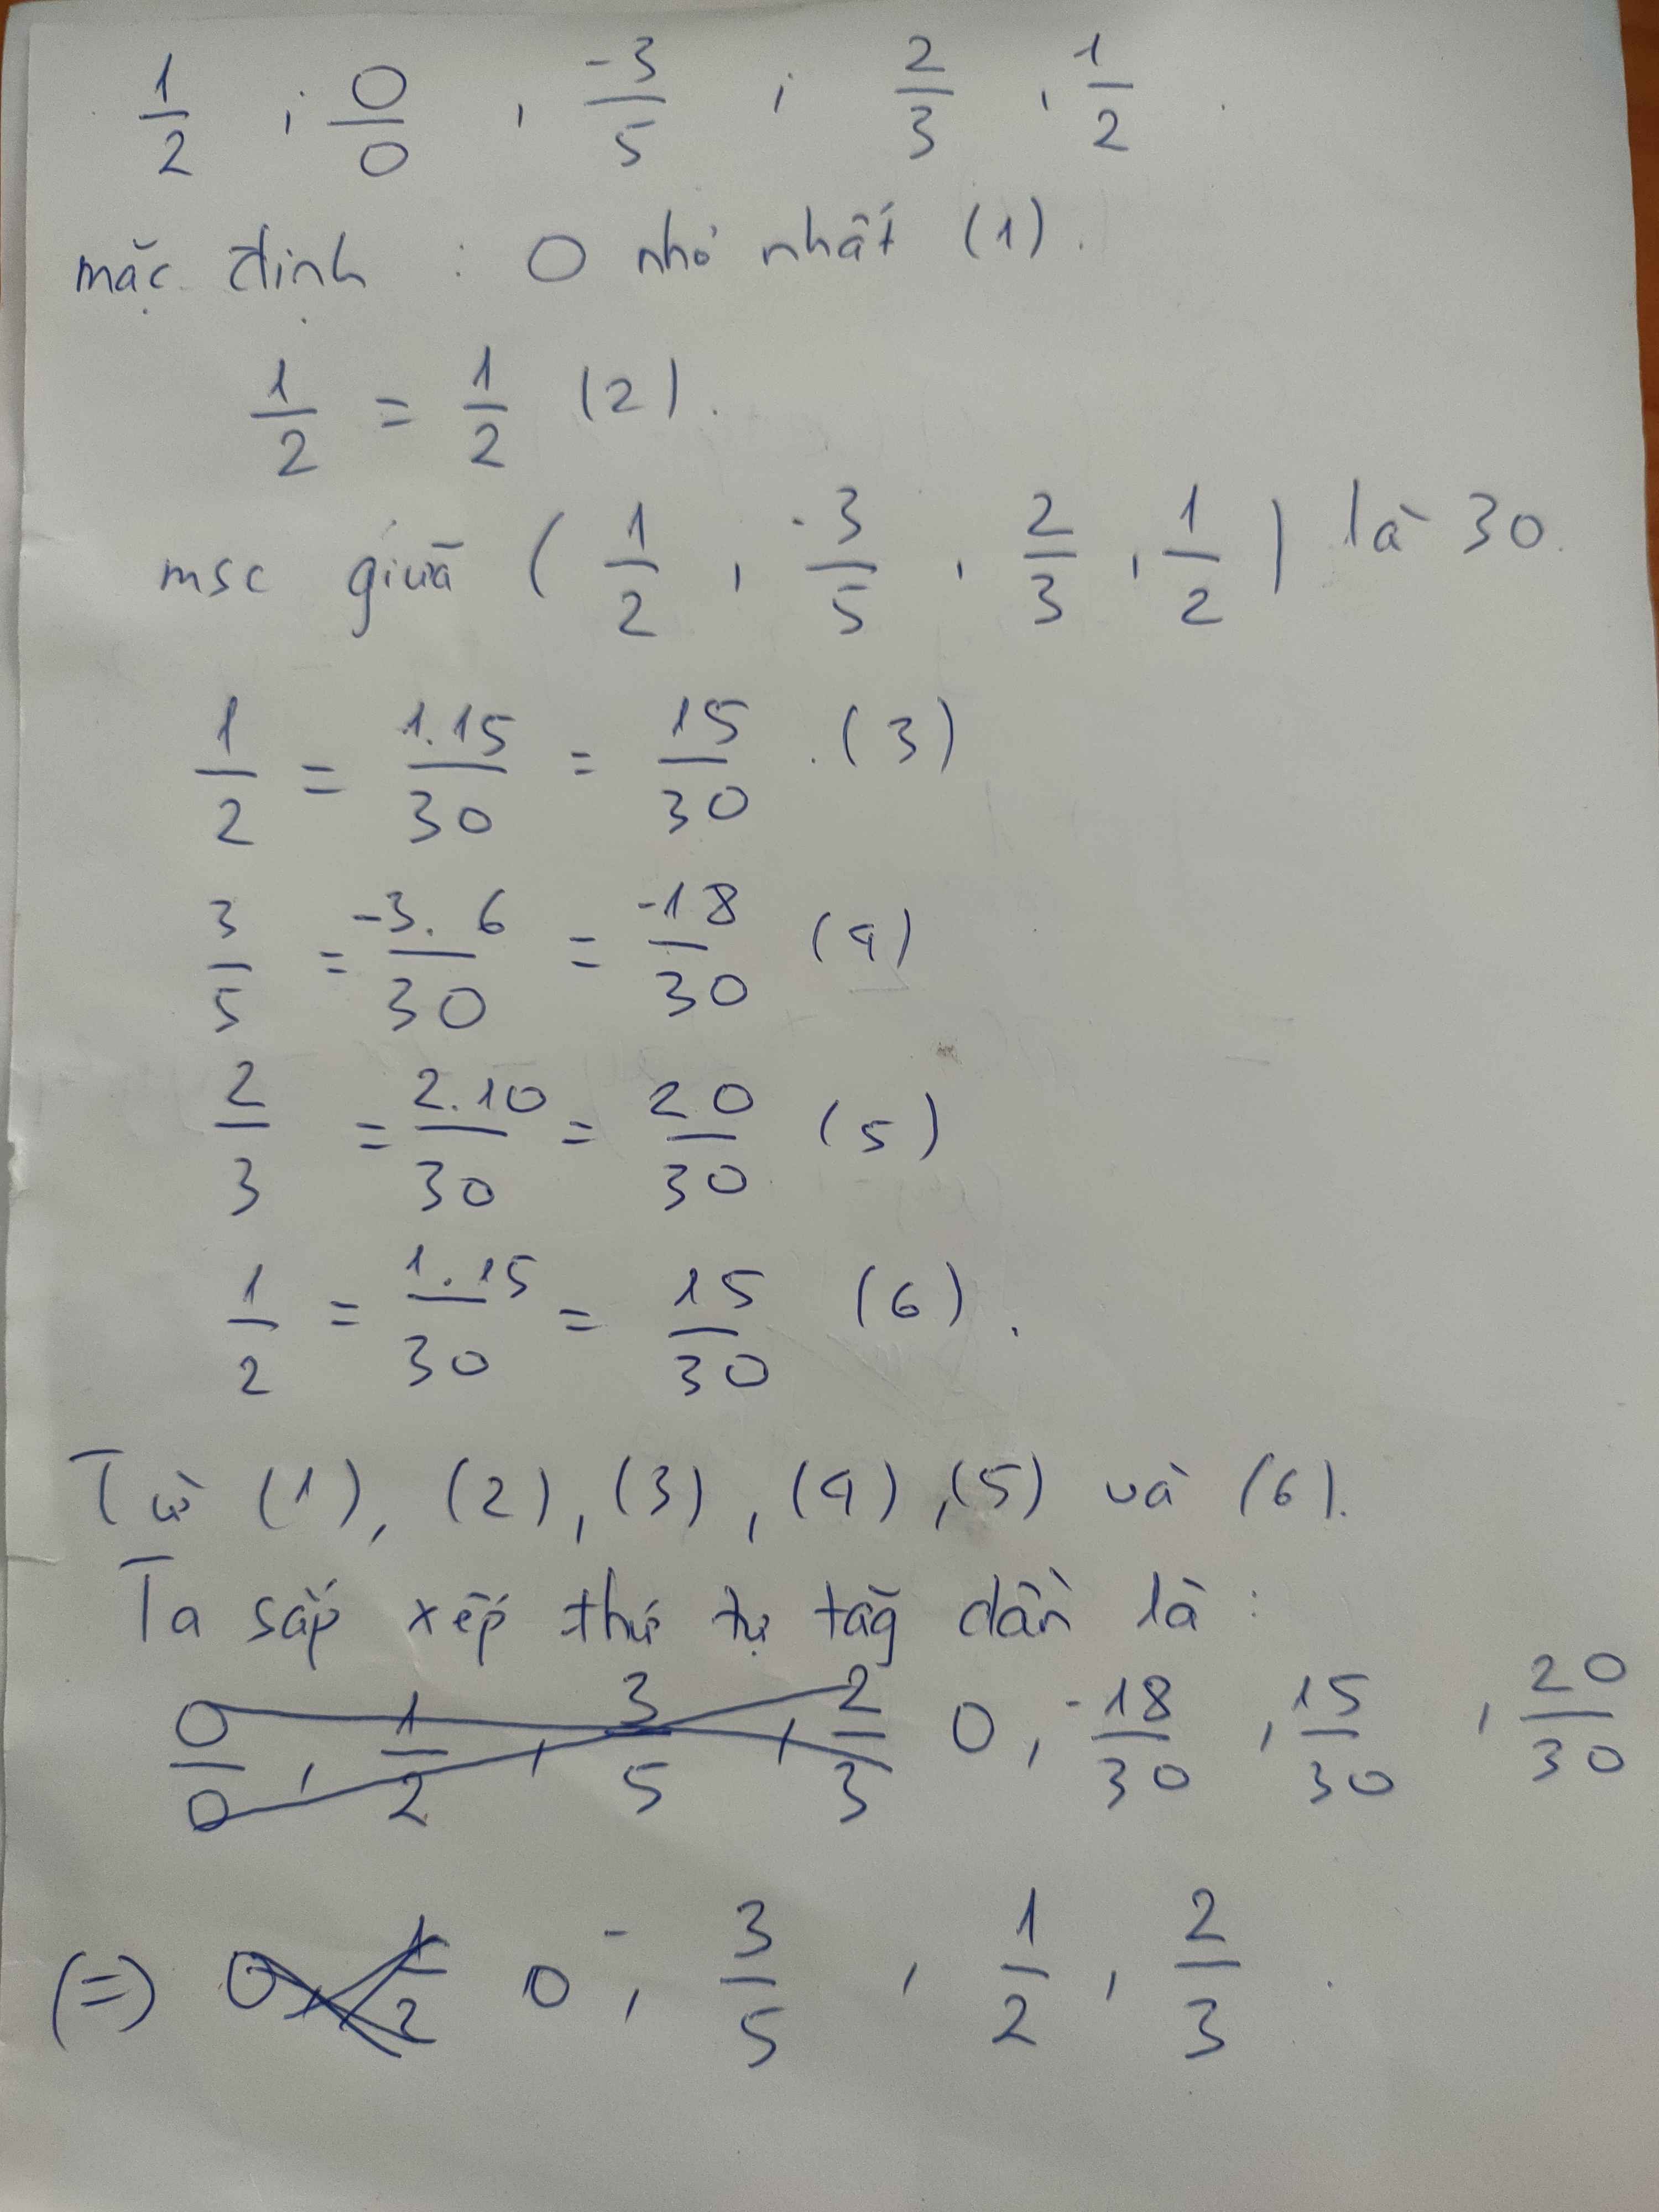 1/2 ; 0/0 , -3/5 ; 2/3 , 1/2 .
mặc định : 0 nhỏ nhất (1).
1/2 = 1/2 (2).
msc giữa ( 1/2 , -3/5 , 2/3 , 1/2 ) là 30.
1/2 = 1.15/30 = 15/30 . (3)
3/5 = -3.6/30 = -18/30 (4)
2/3 = 2.10/30 = 20/30 (5)
1/2 = 1.15/30 = 15/30 (6) .
Từ (1), (2), (3), (4), (5) và (6).
Ta sắp xếp thứ tự tăg dần là :
0/0 , 1/2 , 3/5 , 2/3 0 , -18/30 , 15/30 , 20/30
(=) 0 , 1/2 0 , - 3/5 , 1/2 , 2/3 .